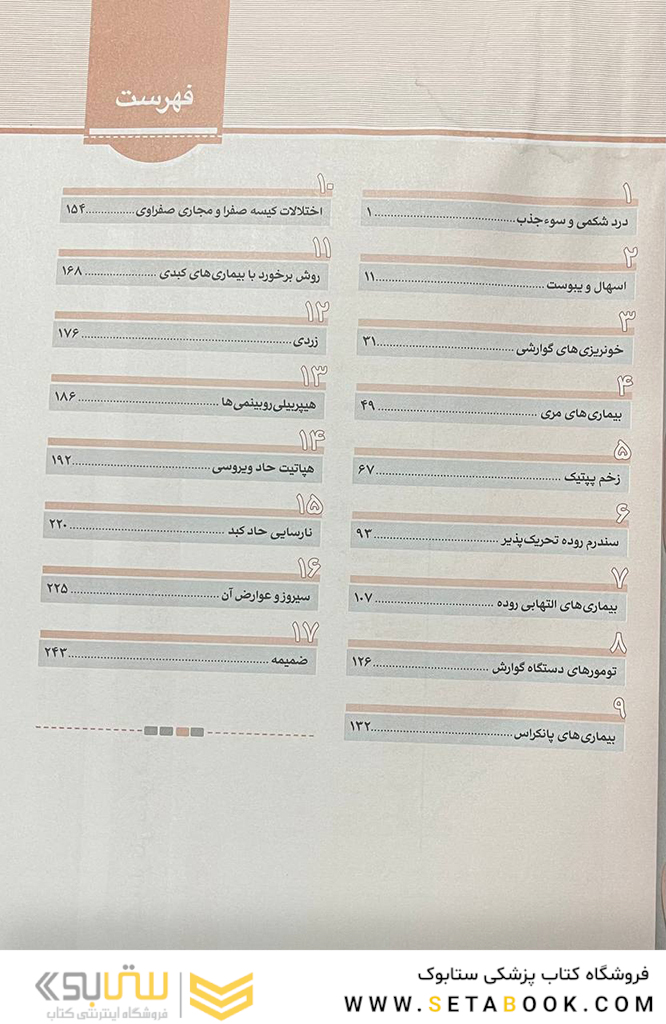 فهرست
۱
درد شکمی و سوءجذب ........ ۱
۲
اسهال و یبوست ........ ۱۱
۳
خونریزی‌های گوارشی ........ ۳۱
۴
بیماری‌های مری ........ ۴۹
۵
زخم پپتیک ........ ۶۷
۶
سندرم روده تحریک‌پذیر ........ ۹۳
۷
بیماری‌های التهابی روده ........ ۱۰۷
۸
تومورهای دستگاه گوارش ........ ۱۲۶
۹
بیماری‌های پانکراس ........ ۱۳۲
۱۰
اختلالات کیسه صفرا و مجاری صفراوی ........ ۱۵۴
۱۱
روش برخورد با بیماری‌های کبدی ........ ۱۶۸
۱۲
زردی ........ ۱۷۶
۱۳
هیپربیلی‌روبینمی‌ها ........ ۱۸۶
۱۴
هپاتیت حاد ویروسی ........ ۱۹۲
۱۵
نارسایی حاد کبد ........ ۲۲۰
۱۶
سیروز و عوارض آن ........ ۲۲۵
۱۷
ضمیمه ........ ۲۴۳
فروشگاه کتاب پزشکی ستابوک
WWW.SETABOOK.COM
ستابوک
فروشگاه اینترنتی کتاب